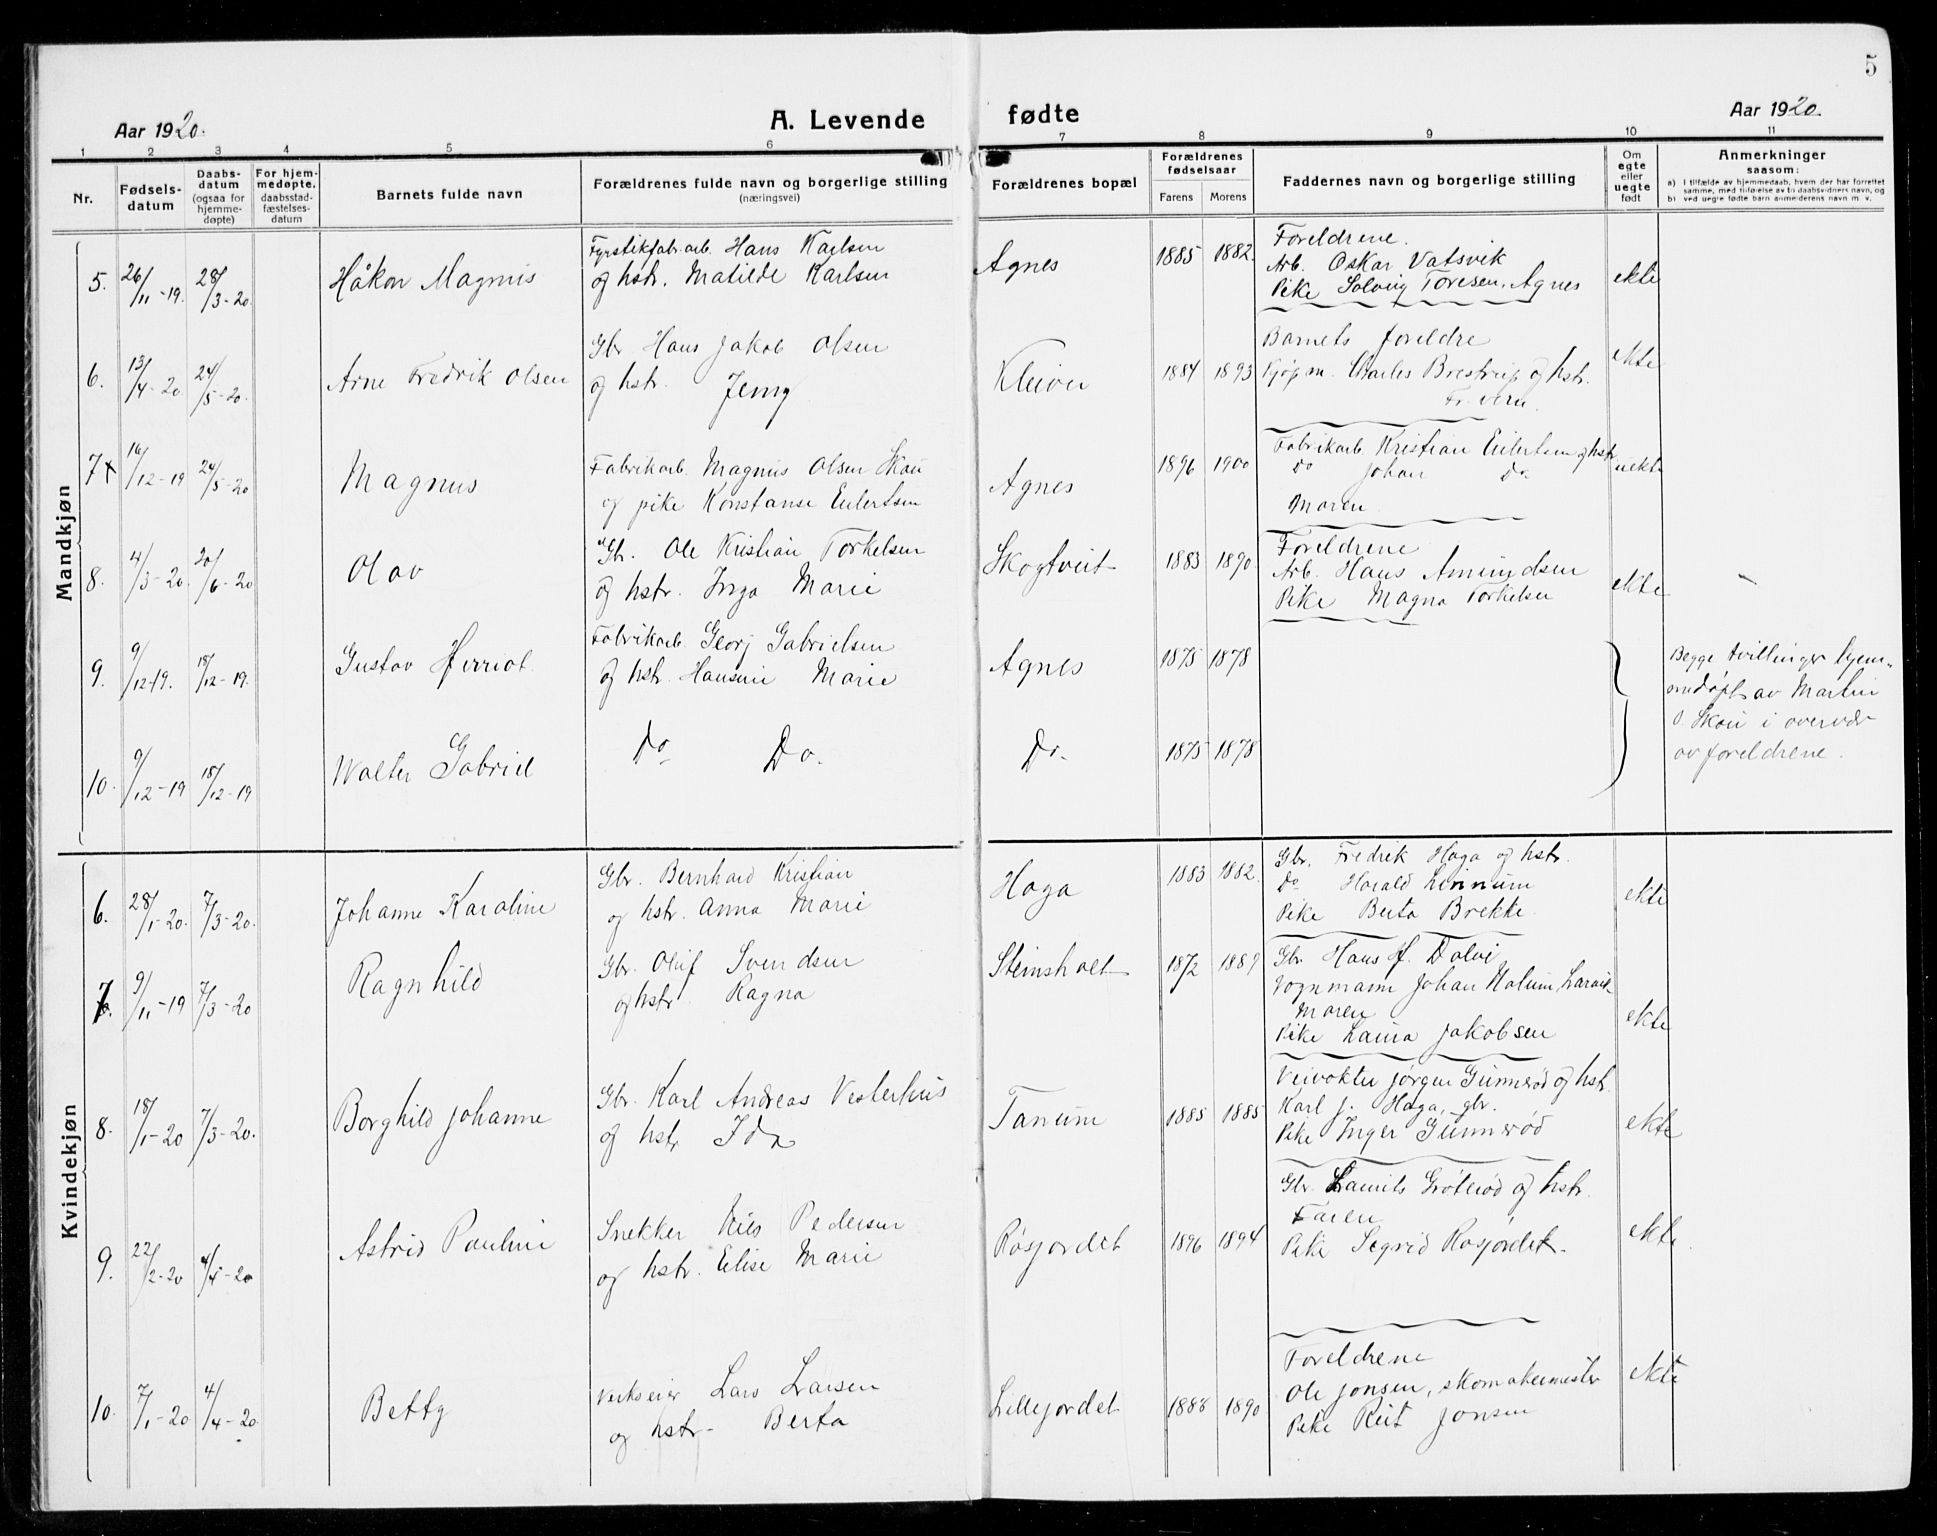 5
Aar 1920.
A. Levende fødte
Aar 1920.
1 2 3 4 5 6 7 8 9 10 11
Nr.
Fødselsdatum
Daabsdatum (ogsaa for hjemmedøpte)
For hjemmedøpte. daabsstadfæstelsesdatum
Barnets fulde navn
Forældrenes fulde navn og borgerlige stilling
(næringsvei)
Forældrenes bopæl
Forældrenes fødselsaar
Farens Morens
Faddernes navn og borgerlige stilling
Om egte eller uegte født
Anmerkninger
saasom:
a) I tilfælde av hjemmedaab, hvem der har forrettet
samme, med tilføielse av to daabsvidners navn, og
b) ved uegte fødte barn anmelderens navn m. v.
Mandkjøn
5. 26/11-19. 28/3-20. Håkon Magnus
Fyrstikfabr.arb. Hans Karlsen
og hstr. Matilde Karlsen
Agnes 1885 1882.
Foreldrene.
Arb. Oskar Vatsvik
Pike Solveig Toresen, Agnes
ekte
6. 13/4-20. 24/5-20. Arne Fredrik Olsen
Gbr Hans Jakob Olsen
og hstr. Jenny
Kleiver 1884 1893
Barnets foreldre
Kjøpm. Charles Brestrup og hstr.
ekte
7 16/12-19 24/5-20 Magnus
Fabrikarb. Magnus Olsen Skau
og pike Konstanse Eilertsen
Agnes 1896 1900
Fabrikarb Kristian Eilertsen og hstr
Do Johan Do
Moren.
uekte
8. 4/3-20. 20/6-20 Olav
Gbr. Ole Kristian Torkelsen
og hstr. Inga Marie
Skogtveit 1883 1890.
Foreldrene
Arb. Hans Amundsen
Pike Magna Torkelsen
ekte
9. 9/12-19. 18/12-19. Gustav Herriot
Fabrikarb. Georg Gabrielsen
og hstr. Hansine Marie
Agnes 1875 1878
Begge tvillinger hjem-
medøpt av Martin
O. Skau i overvær
av foreldrene.
10. 9/12-19 18/12-19 Walter Gabriel
Do Do.
Do. 1875 1878
Kvindekjøn
6. 28/1-20. 7/3-20. Johanne Karoline
Gbr. Bernhard Kristian
og hstr. Anna Marie
Haga 1883 1882.
Gbr. Fredrik Haga og hstr.
Do Harald Linnum
Pike Berta Brekke.
ekte
7. 9/11-19 7/3-20 Ragnhild
Gbr. Oluf Svendsen
og hstr. Ragna
Steinsholt 1872 1889
Gbr Hans H. Dalvi
Vognmann Johan Halum, Larvik
Moren
Pike Laura Jakobsen
ekte
8. 18/1-20 7/3-20. Borghild Johanne
Gbr. Karl Andreas Vesterhus
og hstr Ida
Tanum 1885 1885
Veivokter Jørgen Gunnerød og hstr.
Karl J. Haga, gbr.
Pike Inger Gunnerød
ekte
9. 22/2-20 4/4-20 Astrid Pauline
Snekker Nils Pedersen
og hstr. Elise Marie
Røsjordet 1896 1894
Gbr. Laurits Grøterød og hstr.
Faren
Pike Segrid Røsjordet.
ekte.
10. 7/1-20 4/4-20 Betty
Verkseier Lars Larsen
og hstr. Berta
Lillejordet 1888 1890
Foreldrene
Ole Jonsen, skomakermester
Pike Rut Jonsen
ekte